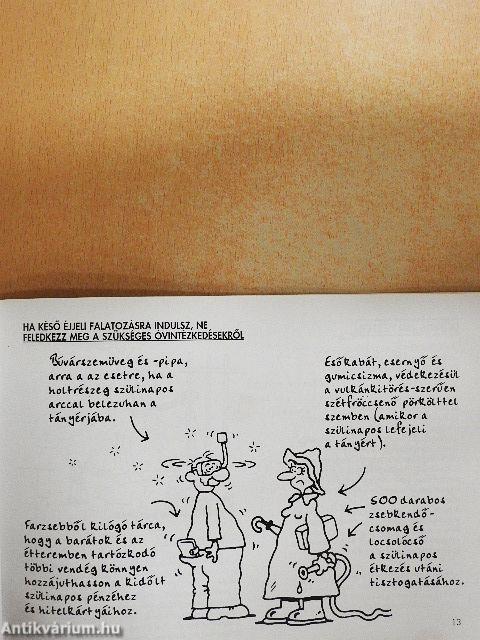 HA KÉSŐ ÉJJELI FALATOZÁSRA INDULSZ, NE
FELEDKEZZ MEG A SZÜKSÉGES ÓVINTÉZKEDÉSEKRŐL
Búvárszemüveg és -pipa,
arra az esetre, ha a
holtrészeg szülinapos
arccal belezuhan a
tányérjába.
Esőkabát, esernyő és
gumicsizma, védekezésül
a vulkánkitörés-szerűen
szétfröccsenő pörkölttel
szemben (amikor a
szülinapos lefejeli
a tányért).
Farzsebből kilógó tárca,
hogy a barátok és az
étteremben tartózkodó
többi vendég könnyen
hozzájuthasson a kidőlt
szülinapos pénzéhez
és hitelkártyáihoz.
500 darabos
zsebkendő-
csomag és
locsolócső
a szülinapos
étkezés utáni
tisztogatásához.
13
Antikvárium.hu